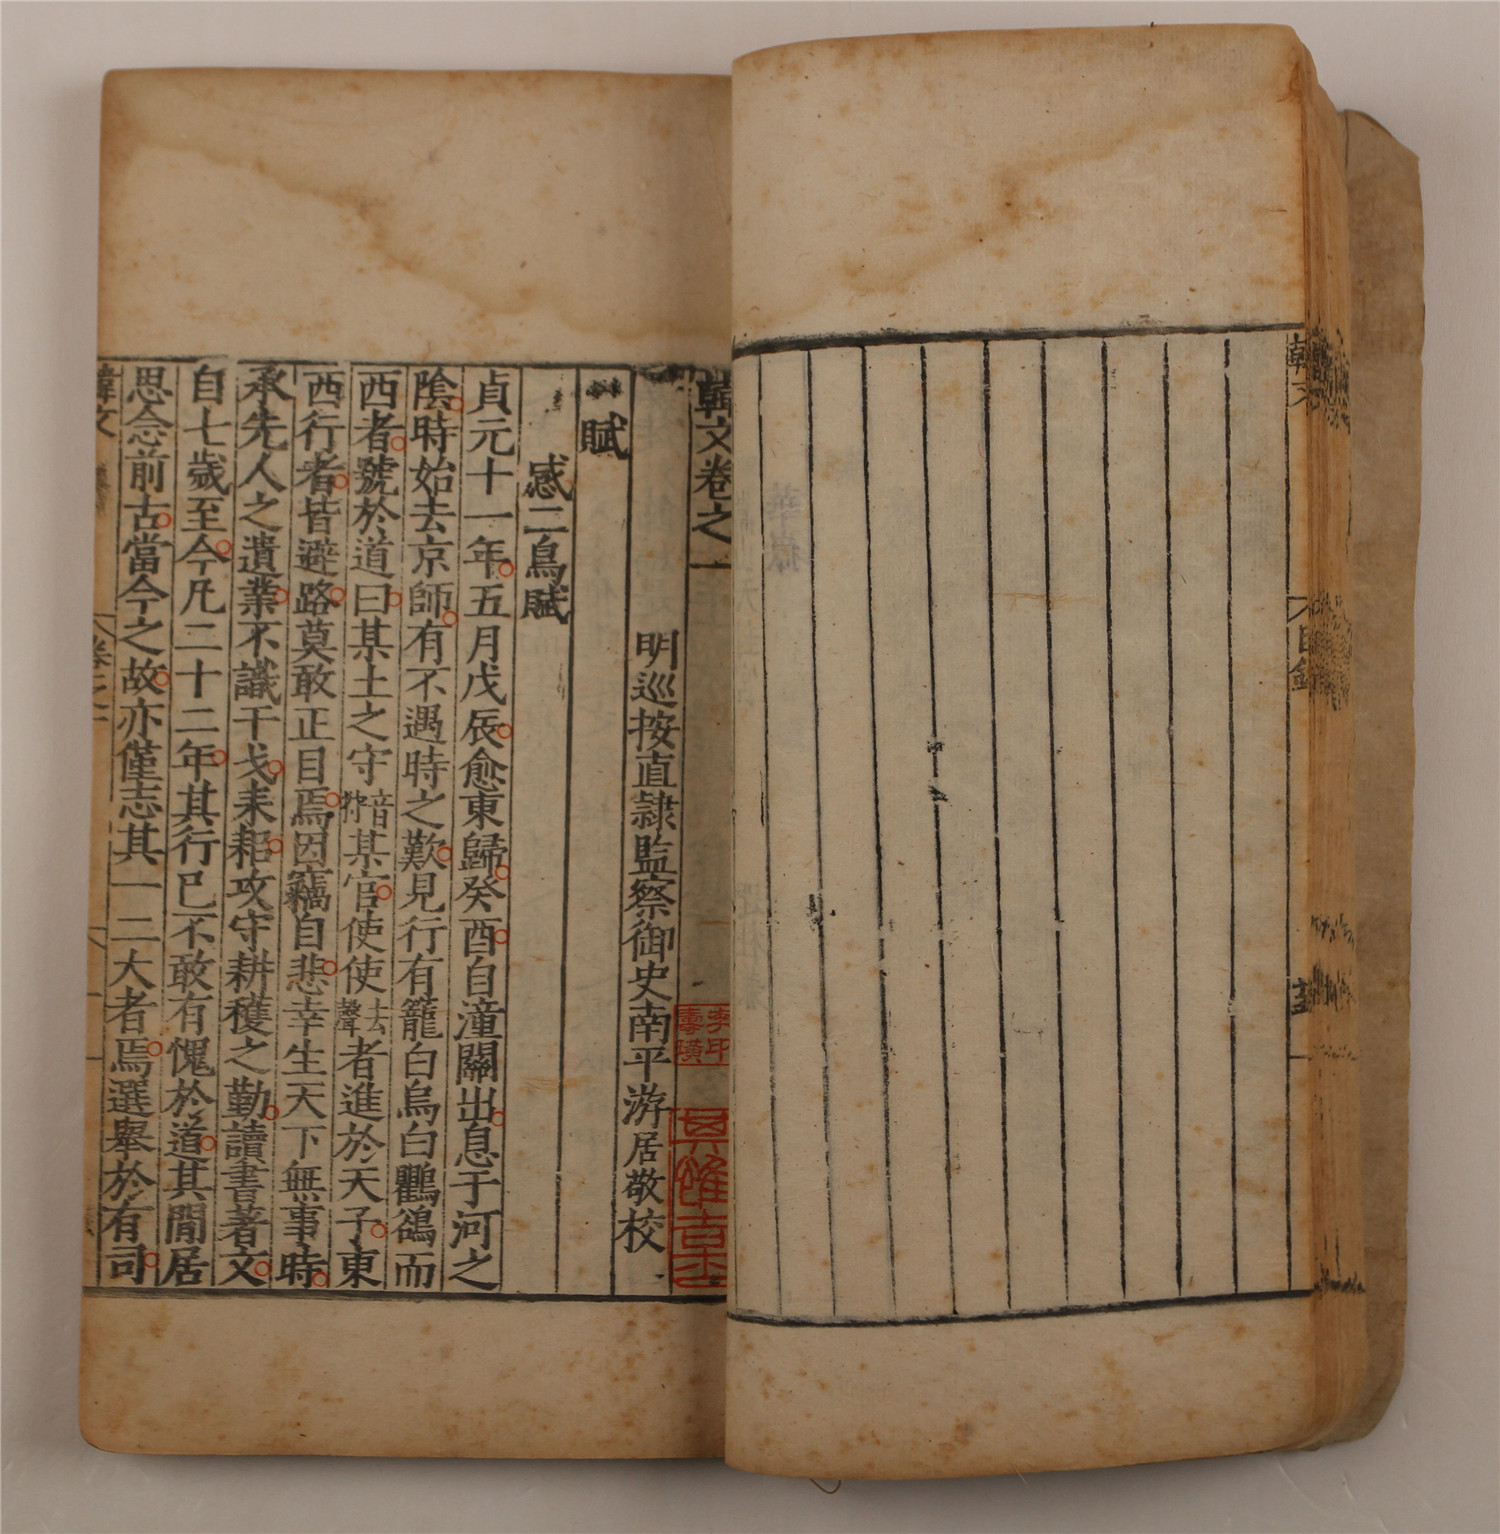 韓文
目錄
韓文卷之一
明巡按直隸監察御史南平游居敬校
賦
感二鳥賦
貞元十一年五月戊辰愈東歸癸酉自潼關出息于河之
陰時始去京師有不遇時之歎見行有籠白烏白鸜鵒而
西者號於道曰某土之守音狩某官使使去聲者進於天子東
西行者皆避路莫敢正目焉因竊自悲幸生天下無事時
承先人之遺業不識干戈耒耜攻守耕穫之勤讀書著文
自七歲至今凡二十二年其行已不敢有愧於道其閒居
思念前古當今之故亦僅志其一二大者焉選舉於有司
韓文
卷之一